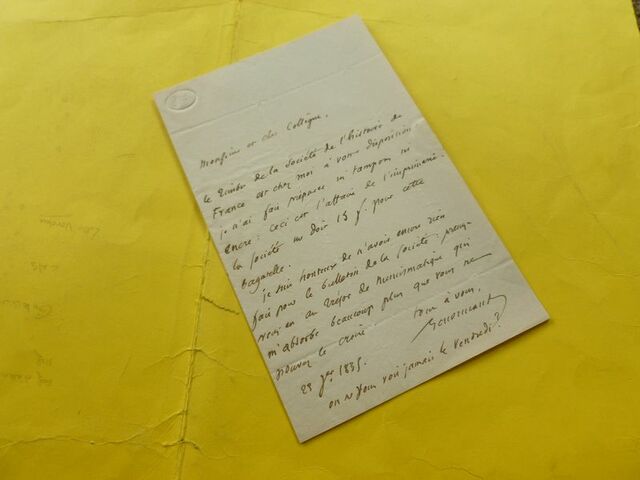 Monsieur et cher Collègue,
le timbre de la Société de l'histoire de
France est chez moi à votre disposition
je n'ai fait préparer ni tampon ni
encre: ceci est l'affaire de l'imprimerie.
la Société me doit 15 f. pour cette
bagatelle.
je suis honteux de n'avoir encore rien
fait pour le bulletin de la Société: prenez
vous en au trésor de Numismatique qui
m'absorbe beaucoup plus que vous ne
pouvez le croire. tout à vous,
Lenormant
23 1835.
on ne vous voit jamais le vendredi?